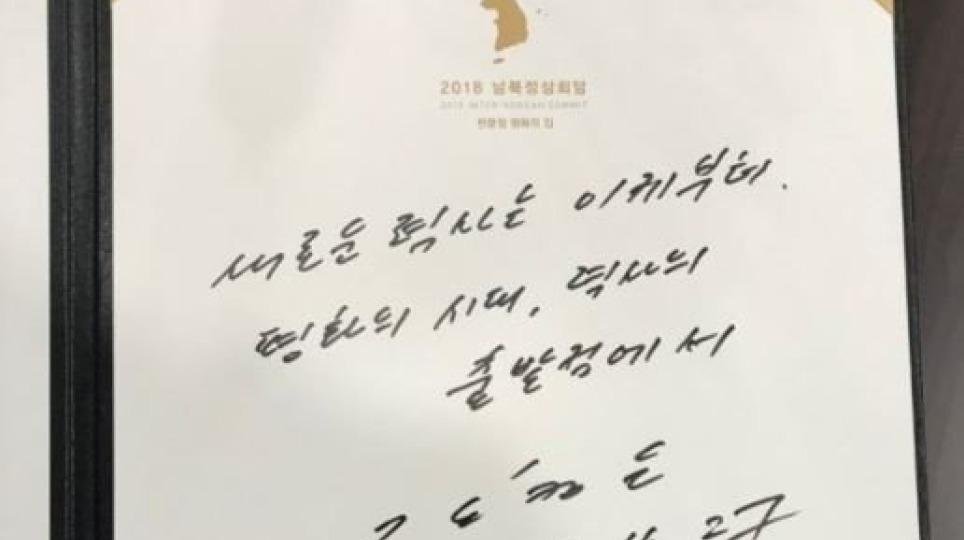 2018 남북정상회담
2018 INTER-KOREAN SUMMIT
판문점 평화의 집
새로운 력사는 이제부터.
평화의 시대, 력사의
출발점에서
김정은